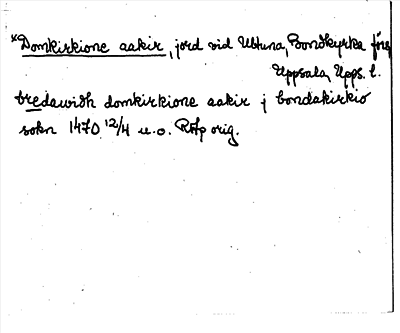 *Domkirkione aakir, jord vid Ultuna, Bondkyrka förs
Uppsala, Upps. l.
bredawidh domkirkione aakir j bondakirkio
sokn 1470 12/4 u.o. RAp orig.